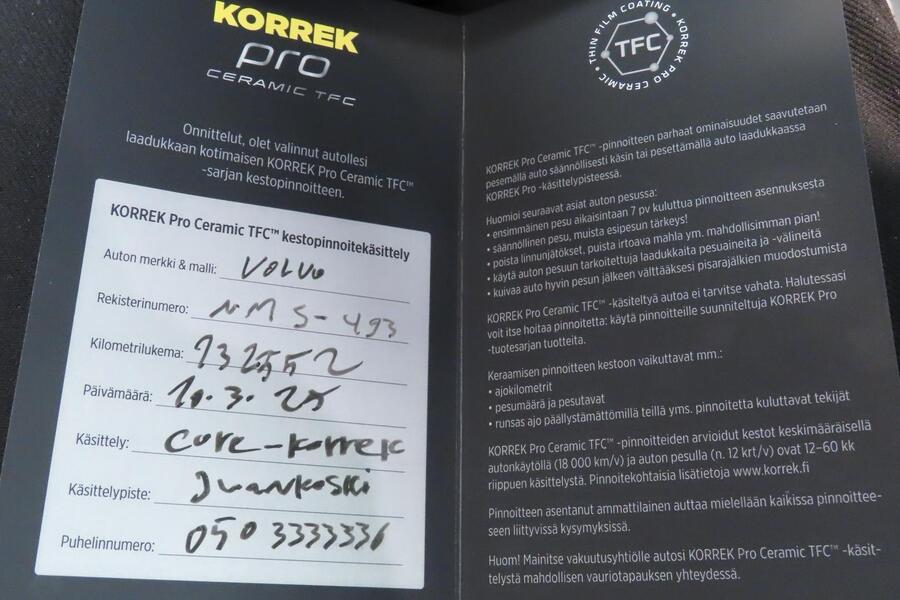 KORREK
pro
CERAMIC TFC
Onnittelut, olet valinnut autollesi
laadukkaan kotimaisen KORREK Pro Ceramic TFC™
-sarjan kestopinnoitteen.
KORREK Pro Ceramic TFC™ kestopinnoitekäsittely
Auton merkki & malli: VOLVO
Rekisterinumero: NMS-493
Kilometrilukema: 232552
Päivämäärä: 10.3.25
Käsittely: Core-Korrek
Käsittelypiste: Juankoski
Puhelinnumero: 050 3333336
THIN FILM COATING • KORREK PRO CERAMIC •
TFC
KORREK Pro Ceramic TFC™ -pinnoitteen parhaat ominaisuudet saavutetaan
pesemällä auto säännöllisesti käsin tai pesettämällä auto laadukkaassa
KORREK Pro -käsittelypisteessä.
Huomioi seuraavat asiat auton pesussa:
• ensimmäinen pesu aikaisintaan 7 pv kuluttua pinnoitteen asennuksesta
• säännöllinen pesu, muista esipesun tärkeys!
• poista linnunjätökset, puista irtoava mahla ym. mahdollisimman pian!
• käytä auton pesuun tarkoitettuja laadukkaita pesuaineita ja -välineitä
• kuivaa auto hyvin pesun jälkeen välttääksesi pisarajälkien muodostumista
KORREK Pro Ceramic TFC™ -käsiteltyä autoa ei tarvitse vahata. Halutessasi
voit itse hoitaa pinnoitetta: käytä pinnoitteille suunniteltuja KORREK Pro
-tuotesarjan tuotteita.
Keraamisen pinnoitteen kestoon vaikuttavat mm.:
• ajokilometrit
• pesumäärä ja pesutavat
• runsas ajo päällystämättömillä teillä yms. pinnoitetta kuluttavat tekijät
KORREK Pro Ceramic TFC™ -pinnoitteiden arvioidut kestot keskimääräisellä
autonkäytöllä (18 000 km/v) ja auton pesulla (n. 12 krt/v) ovat 12–60 kk
riippuen käsittelystä. Pinnoitekohtaisia lisätietoja www.korrek.fi
Pinnoitteen asentanut ammattilainen auttaa mielellään kaikissa pinnoittee-
seen liittyvissä kysymyksissä.
Huom! Mainitse vakuutusyhtiölle autosi KORREK Pro Ceramic TFC™ -käsit-
telystä mahdollisen vauriotapauksen yhteydessä.